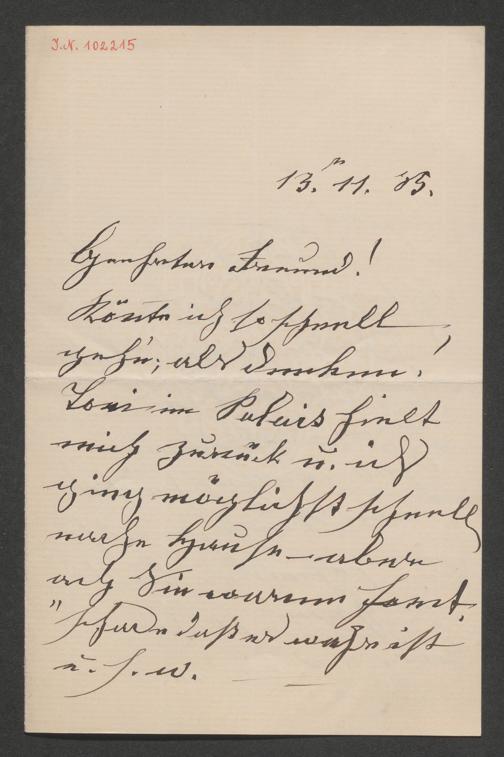 J.N. 102215
13. 11. 85.
Geehrter Freund!
Könnte ich so schnell
geh'n, als denken!
Toni im Palais hielt
mich zurück u. ich
ging möglichst schnell
nache Hause – aber
ach Sie waren fort.
"schade daß es wahr ist
u. s. w.